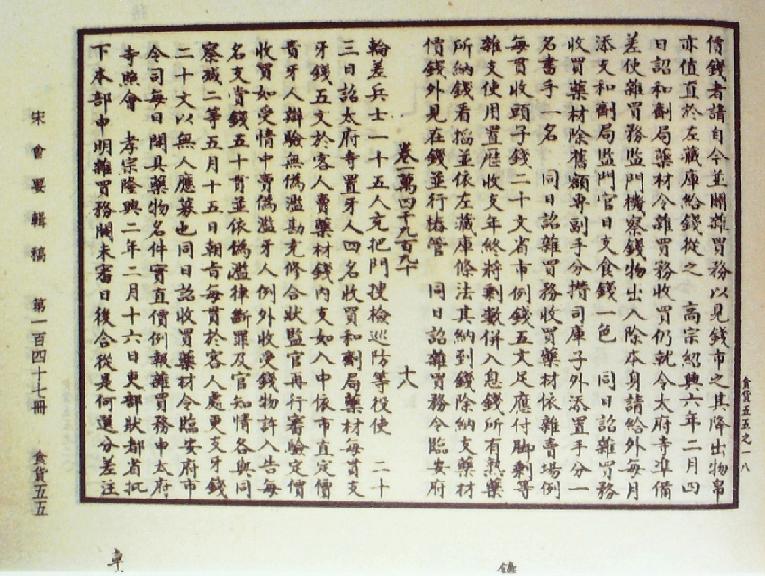 價錢者請自今並關雜買務以見錢市之其降出物帛
亦值直於左藏庫給錢從之　高宗紹興六年二月四
日詔和劑局藥材令雜買務收買仍就令太府寺準備
差使雜買務監門機察錢物出入除本身請給外每月
添支和劑局監門官日支食錢一色　同日詔雜買務
收買藥材除舊額專副手分攢司庫子外添置手分一
名書手一名　同日詔雜買務收買藥材依雜賣場例
每貫收頭子錢二十文省市例錢五文足應付脚剩等
雜支使用置歷收支年終將剩數併入息錢所有熟藥
所納錢看搯並依左藏庫條法其納到錢除納支藥材
價錢外見在錢並行樁管　同日詔雜買務令臨安府
卷一萬四千九百九十　十八
輪差兵士一十五人充把門搜檢巡防等役使　二十
三日詔太府寺置牙人四名收買和劑局藥材每貫支
牙錢五文於客人賣藥材錢內支如入中依市直定價
責牙人辯驗無偽濫勘充修合狀監官再行看驗定價
收買如受情中賣偽濫牙人例外收受錢物許入告每
名支賞錢五十貫並依偽濫律斷罪及官知情各與同
察減二等五月十五日朝旨每貫於客人處更支牙錢
二十文以無人應募也同日詔收買藥材令臨安府市
令司每日開具藥物名件實直價例報雜買務申太府
寺照會　孝宗隆興二年二月十六日吏部狀都省批
下本部申明雜買務闕未審日後合從是何選分差注
宋會要輯稿　第一百四十七冊　食貨五五
食貨五五之一八